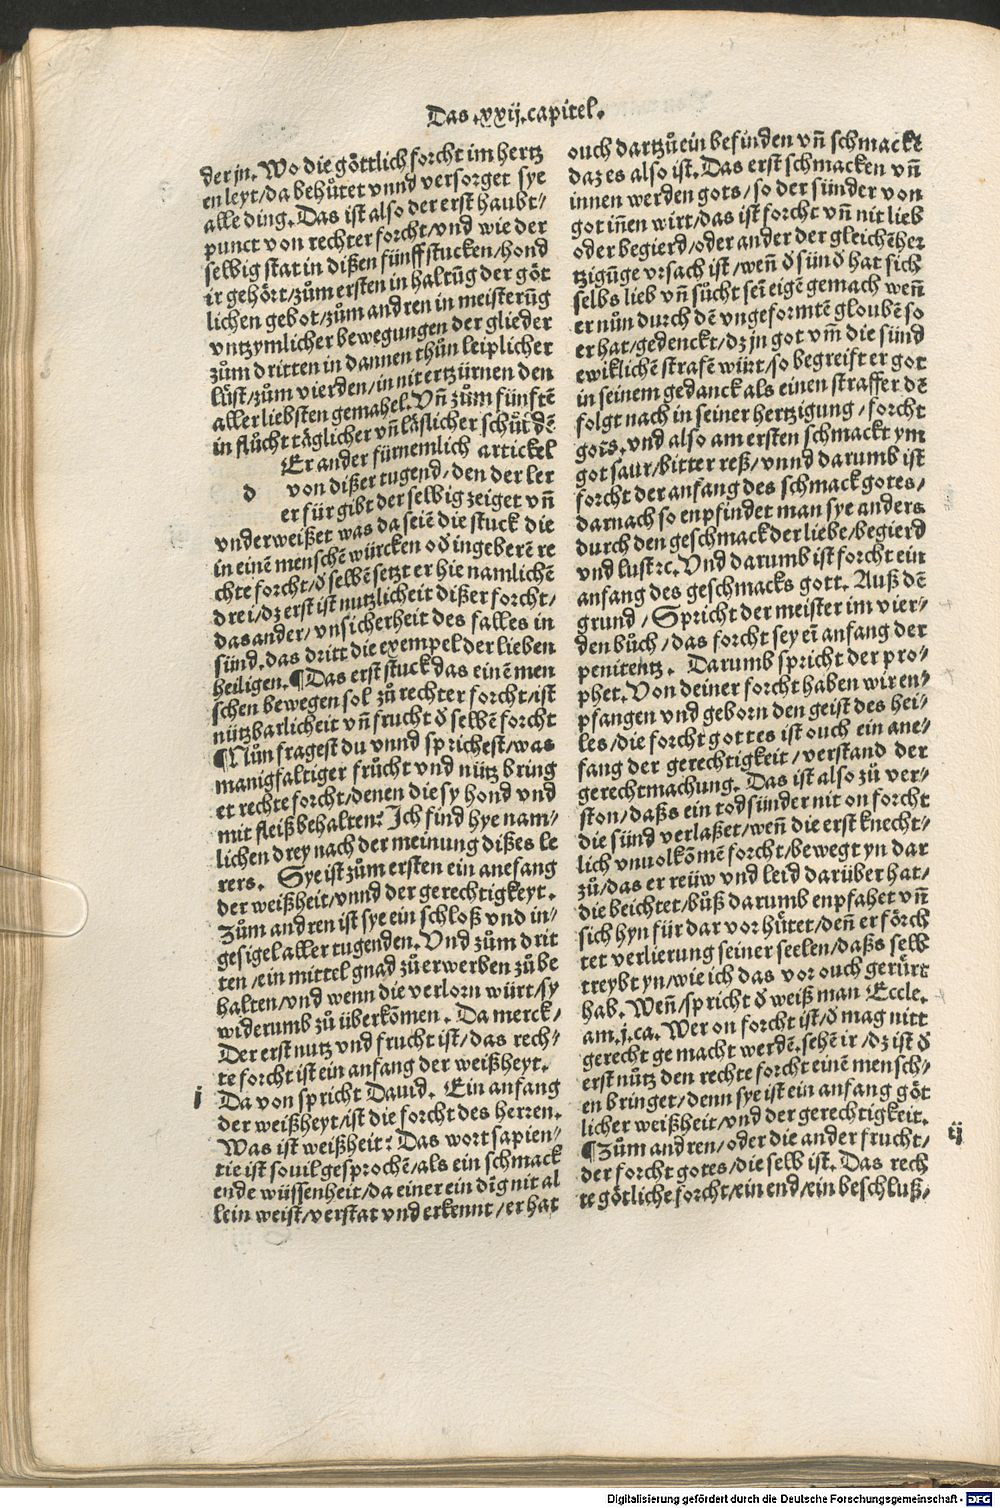 Das .xxij. capitel.
der jn. Wo die göttlich forcht im hertz
en leyt/da behu̍tet vnnd versorget sye
alle ding. Das ist also der erst haubt⸗
punct von rechter forcht/vnd wie der
selbig stat in dißen fünff stucken/hond
ir gehört/zům ersten in haltūg der göt
lichen gebot/zům andren in meisterūg
vntzymlicher bewegungen der glieder
zům dritten in dannen thůn leiplicher
lüst/zům vierden/in nit ertzürnen den
aller liebsten gemahel. Vn̄ zům fünftē
in flůcht täglicher vn̄ läslicher schuldē
d
Er ander fürnemlich artickel
von dißer tugend/den der ler
er für gibt der selbig zeiget vn̄
vnderweißet was da seiē die stuck die
in einē menschē würcken oď ingeberē re
chte forcht/ď selbē setzt er hie namlichē
drei/dz erst ist nutzlicheit dißer forcht/
das ander/vnsicherheit des falles in
sünd. das dritt die exempel der lieben
heiligen. ¶Das erst stuck das einē men
schen bewegen sol zů rechter forcht/ist
nützbarlicheit vn̄ frucht ď selbē forcht
¶Nůn fragest du vnnd sprichest/was
manigfaltiger frücht vnd nütz bring
et rechte forcht/denen die sy hond vnd
mit fleiß behalten? Ich find hye nam⸗
lichen drey nach der meinung dißes le
rers. Sye ist zům ersten ein anefang
der weißheit/vnnd der gerechtigkeyt.
Zům andren ist sye ein schloß vnd in⸗
gesigel aller tugenden. Vnd zům drit
ten/ein mittel gnad zů erwerben zů be
halten/vnd wenn die verlorn würt/sy
widerumb zů überkōmen. Da merck/
Der erst nutz vnd frucht ist/das rech⸗
te forcht ist ein anfang der weißheyt.
i
Da von spricht Dauid. Ein anfang
der weißheyt/ist die forcht des herren.
Was ist weißheit? Das wort sapien⸗
tie ist souil gesprochē/als ein schmack
ende wüssenheit/da einer ein dīg nit al
lein weist/verstat vnd erkennt/er hat
ouch dartzů ein befinden vn̄ schmackt
daz es also ist. Das erst schmacken vn̄
innen werden gots/so der sünder von
got iñen wirt/das ist forcht vn̄ nit lieb
oder begierd/oder ander der gleichē her
tzigūge vrsach ist/wen̄ ď sünď hat sich
selbs lieb vn̄ sůcht sei̅ eigē gemach wen̄
er nůn durch dē vngeformtē gloubē so
er hat/gedenckt/dz jn got vm̄ die sünd
ewiklichē strafē würt/so begreift er got
in seinem gedanck als einen straffer dē
folgt nach in seiner hertzigung/forcht
gots. vnd also am ersten schmackt ym
got saur/bitter reß/vnnd darumb ist
forcht der anfang des schmack gotes/
darnach so enpfindet man sye anders
durch den geschmack der liebe/begierd
vnd lust ꝛc. Vnd darumb ist forcht ein
anfang des geschmacks gott. Auß dē
grund/Spricht der meister im vier⸗
den bůch/das forcht sey ei̅ anfang der
penitentz. Darumb spricht der pro⸗
phet. Von deiner forcht haben wir en⸗
pfangen vnd geborn den geist des hei⸗
les/die forcht gottes ist ouch ein ane⸗
fang der gerechtigkeit/verstand der
gerechtmachung. Das ist also zů ver⸗
ston/daßs ein todsünder nit on forcht
die sünd verlaßet/wen̄ die erst knecht⸗
lich vnuolkōmē forcht/bewegt yn dar
zů/das er reüw vnd leid darüber hat/
die beichtet/bůß darumb enpfahet vn̄
sich hyn für dar vor hu̍tet/den̄ er förch
tet verlierung seiner seelen/daßs selb
treybt yn/wie ich das vor ouch gerürt
hab. Wen̄/spricht ď weiß man Eccle.
am .j. ca. Wer on forcht ist/ď mag nitt
gerecht gemacht werdē. sehē ir/dz ist ď
erst nütz den rechte forcht einē mensch⸗
en bringet/denn sye ist ein anfang göt
licher weißheit/vnd der gerechtigkeit.
ij
¶Zům andren/oder die ander frucht/
der forcht gotes/die selb ist. Das rech
te götliche forcht/ein end/ein beschluß/
Digitalisierung gefördert durch die Deutsche Forschungsgemeinschaft - DFG